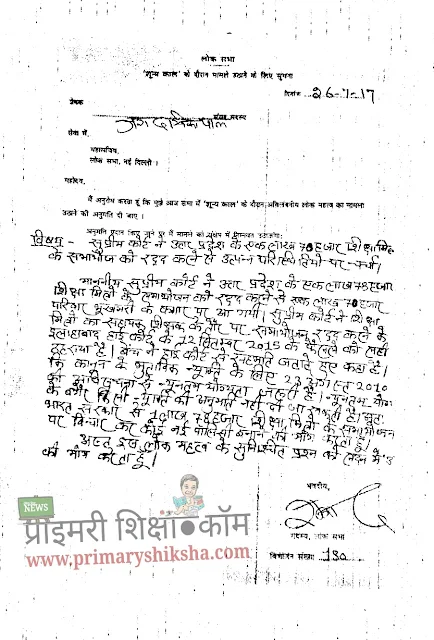 लोक सभा
'शून्य काल' के दौरान मामले उठाने के लिए सूचना
दिनांक 26-7-17
प्रेषक
संसद सदस्य
सेवा में,
महासचिव,
लोक सभा, नई दिल्ली।
महोदय,
मैं अनुरोध करता हूं कि मुझे आज सभा में 'शून्य काल' के दौरान अविलंबनीय लोक महत्व का मामला
उठाने की अनुमति दी जाए।
अनुमति प्रदान किए जाने पर मैं मामले को संक्षेप में
विषय - सुप्रीम कोर्ट ने उत्तर प्रदेश के एक लाख 78 हजार शिक्षामित्रों
के समायोजन को रद्द करने से उत्पन्न परिस्थितियों पर चर्चा।
माननीय सुप्रीम कोर्ट ने उत्तर प्रदेश के एक लाख 78 हजार
शिक्षा मित्रों के समायोजन को रद्द करने से एक लाख 78 हजार
परिवार भुखमरी के कगार पर आ गये। सुप्रीम कोर्ट ने शिक्षा
मित्रों का सहायक शिक्षक के तौर पर समायोजन रद्द करने के
इलाहाबाद हाई कोर्ट के 12 सितम्बर 2015 के फैसले को सही
ठहराया है। बेंच ने हाई कोर्ट से सहमति जताते हुए कहा है।
कि कानून के मुताबिक नियुक्ति के लिए 23 अगस्त 2010
की अधिसूचना से न्यूनतम योग्यता जरूरी है। न्यूनतम योग्यता
के बगैर किसी नियुक्ति की अनुमति नहीं दी जा सकती है। अतः
भारत सरकार से 1 लाख 78 हजार शिक्षा मित्रों के समायोजन
पर विचार कर कोई नई पालिसी बनाने की मांग करता हूं।
अतः इस लोक महत्व के सुनिश्चित प्रश्न को सदन में
की मांग करता हूं।
भवदीय,
सदस्य, लोक सभा
विभाजन संख्या 180
NEWS
प्राइमरी शिक्षा•कॉम
www.primaryshiksha.com